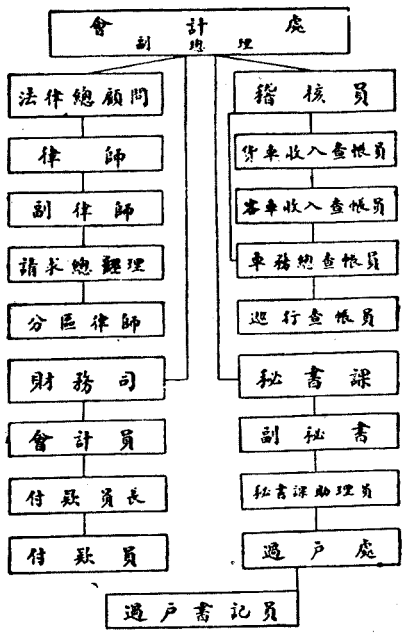 會計處
副總理
法律總顧問
律師
副律師
請求總經理
分區律師
財務司
會計員
付欵員長
付欵員
稽核員
貨車收入查帳員
客車收入查帳員
車務總查帳員
巡行查帳員
秘書課
副秘書
秘書課助理員
過戶處
過戶書記員